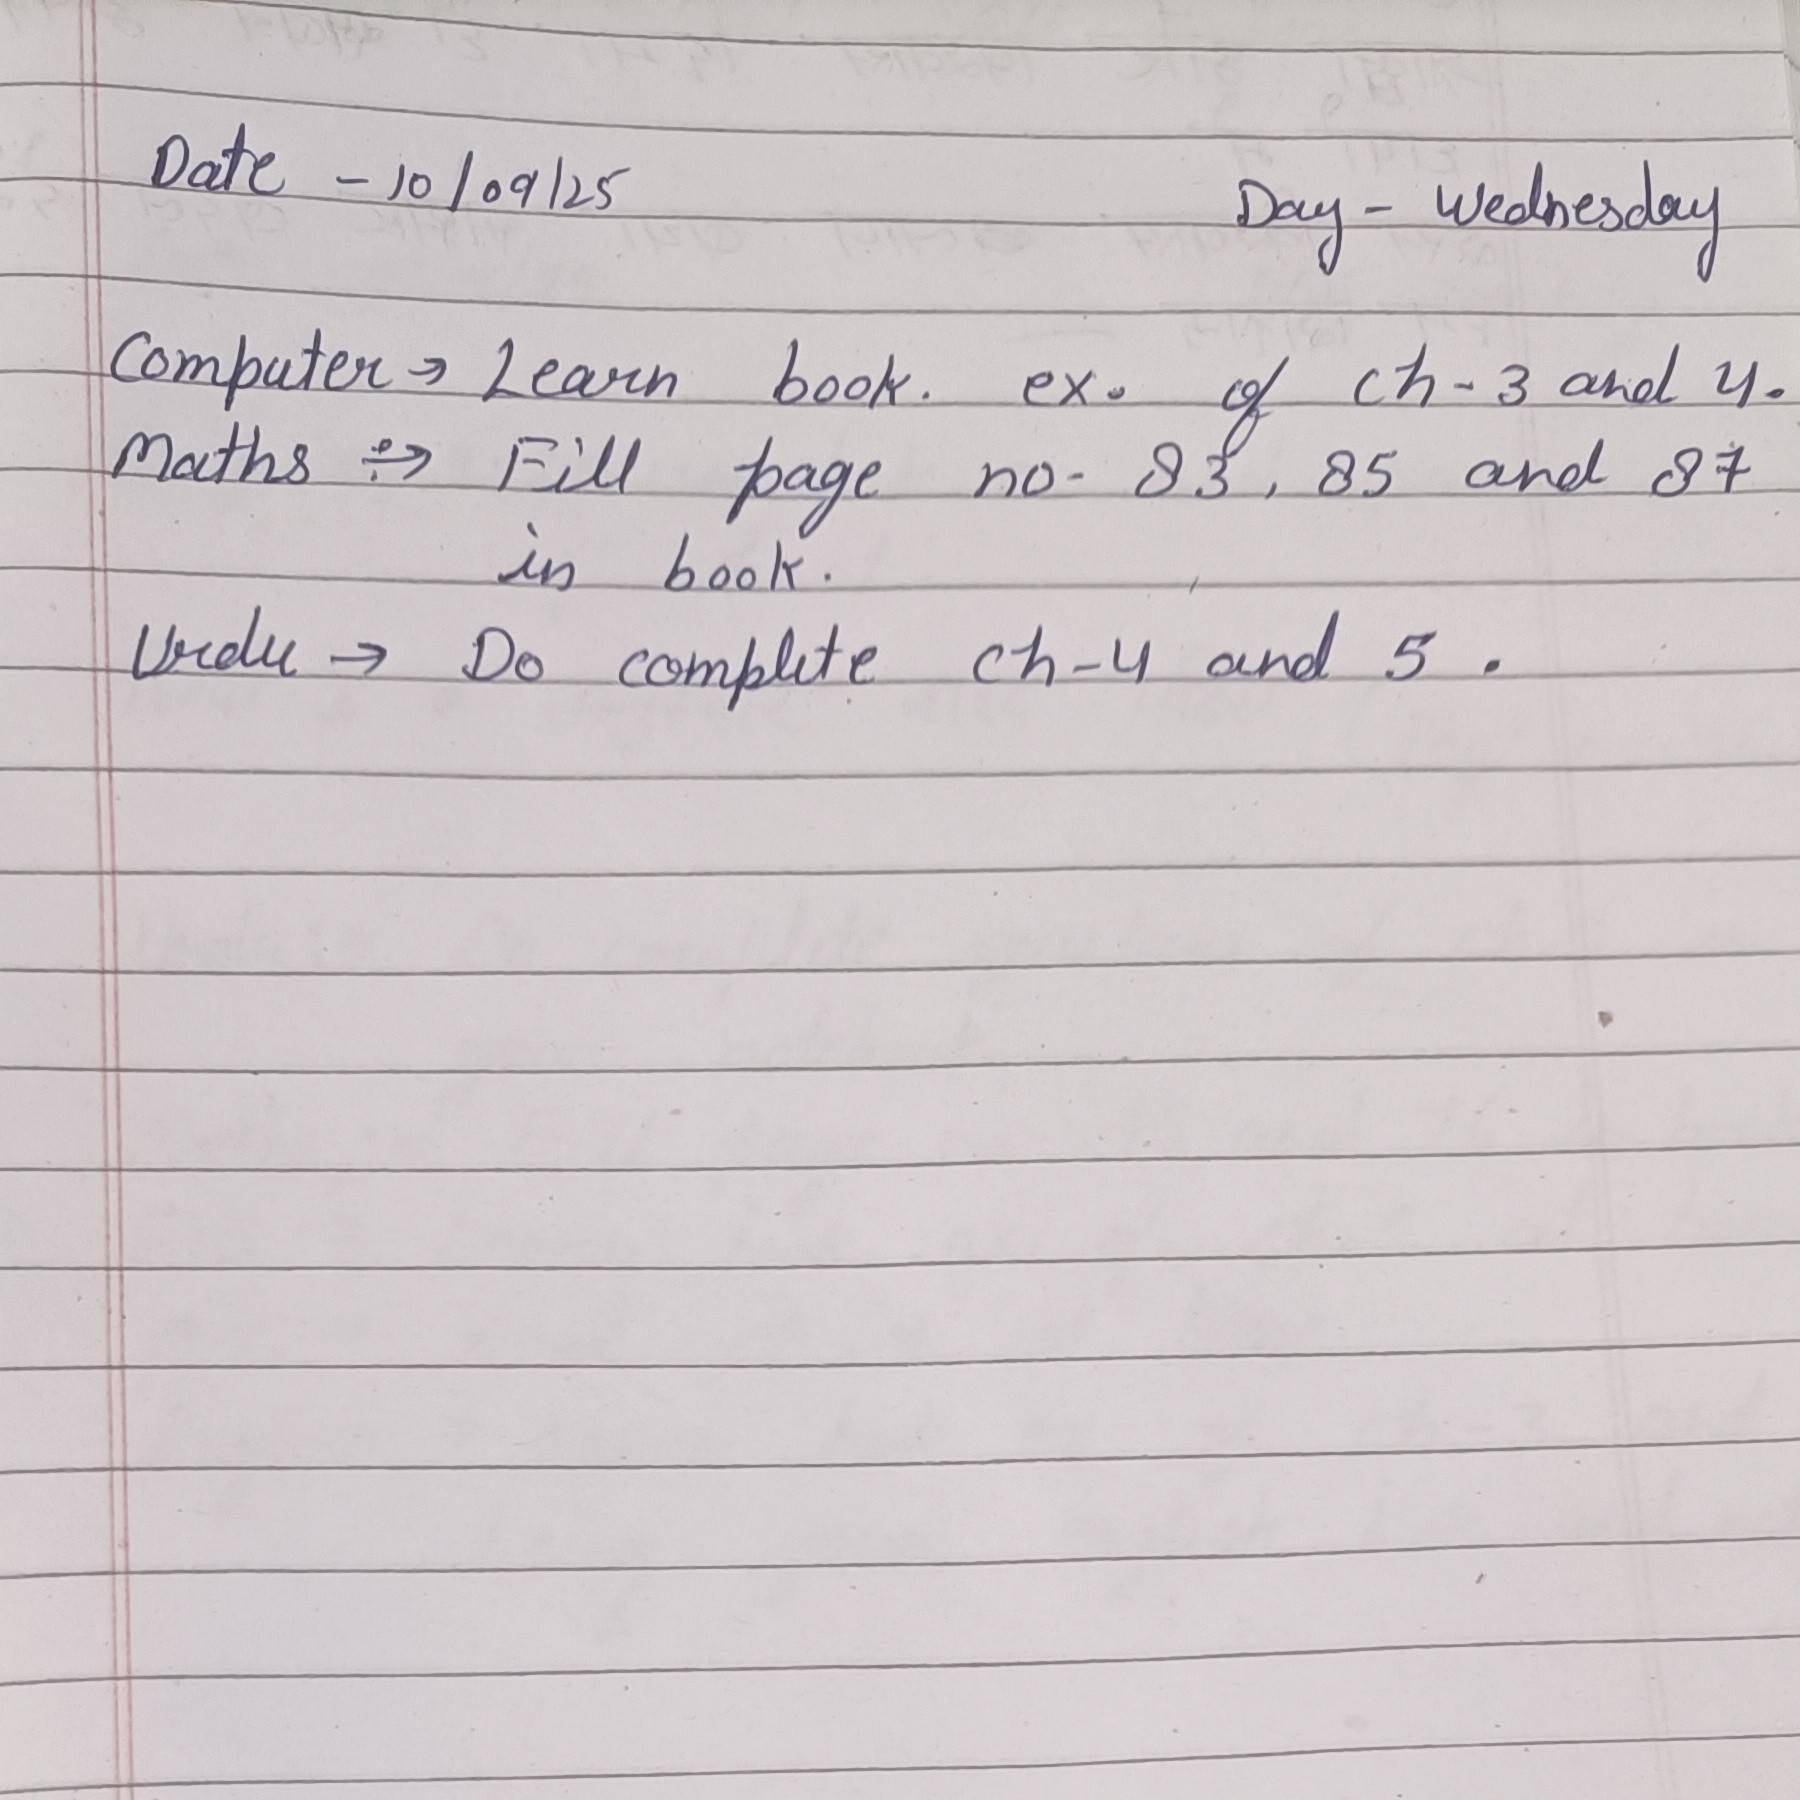 Date - 10/09/25 Day - Wednesday
Computer → Learn book. ex. of ch-3 and 4.
Maths → Fill page no- 83, 85 and 87
in book.
Urdu → Do complete ch-4 and 5.